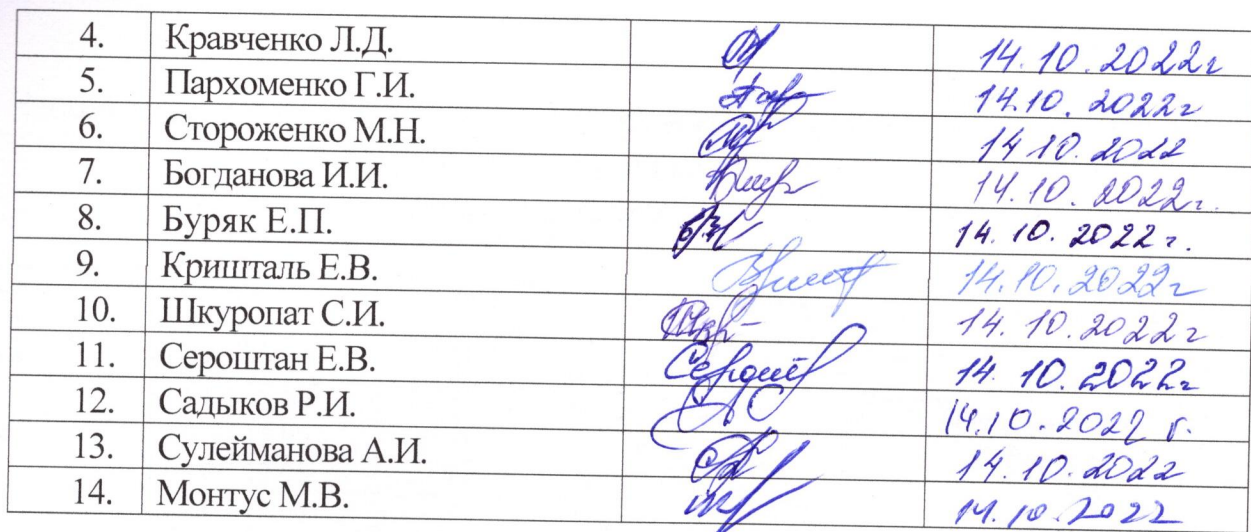 4. Кравченко Л.Д. 14.10.2022г
5. Пархоменко Г.И. 14.10.2022г
6. Стороженко М.Н. 14.10.2022
7. Богданова И.И. 14.10.2022г.
8. Буряк Е.П. 14.10.2022г.
9. Кришталь Е.В. 14.10.2022г
10. Шкуропат С.И. 14.10.2022г
11. Сероштан Е.В. 14.10.2022г
12. Садыков Р.И. 14.10.2022 г.
13. Сулейманова А.И. 14.10.2022
14. Монтус М.В. 14.10.2022